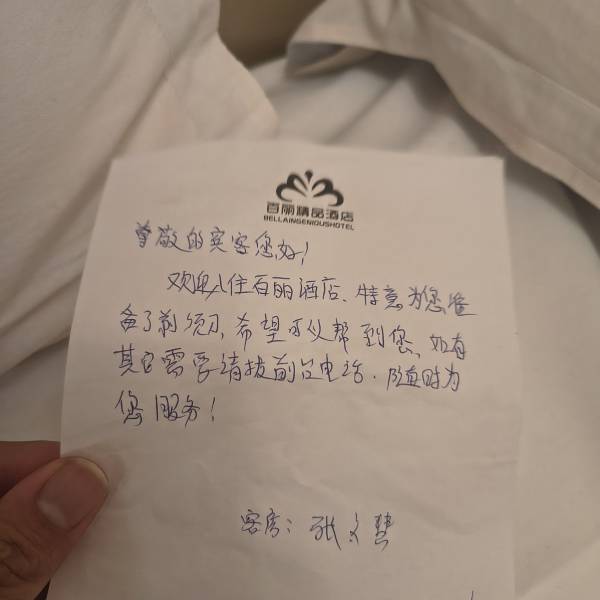 百丽精品酒店
BELLAINGENIOUSHOTEL
尊敬的宾客您好！
欢迎入住百丽酒店、特意为您准
备了剃须刀、希望可以帮到您、如有
其它需要请拨前台电话．随时为
您服务！
客房：张文慧